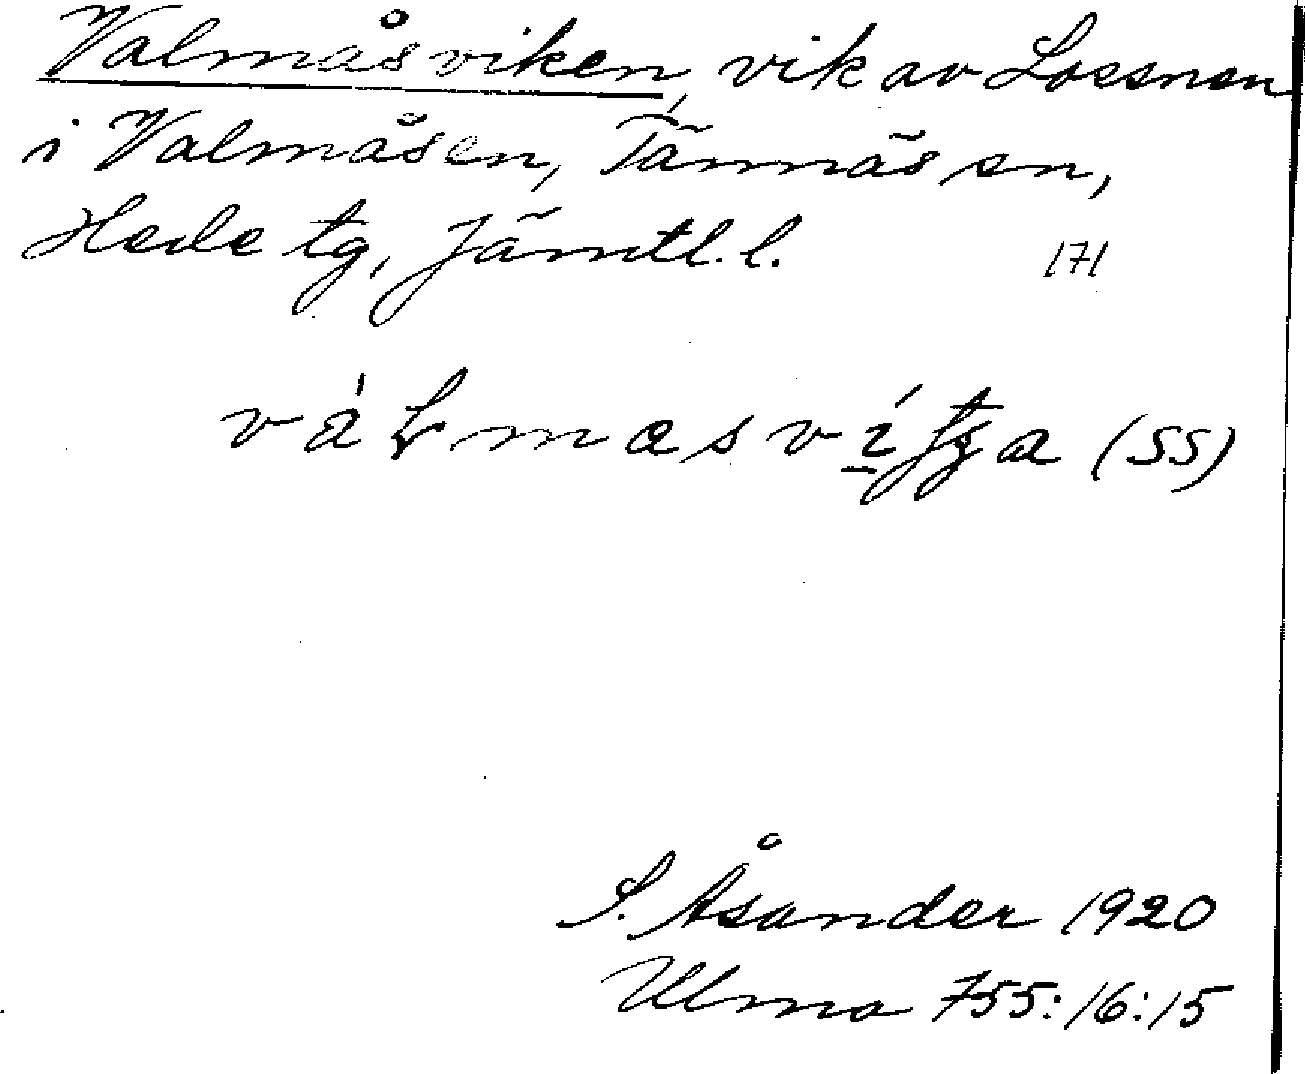 Valmåsviken, vik av Lossnen
i Valmåsen, Tännäs sn,
Hede tg, Jämtl. l. 171
(SS)
S. Åsander 1920
Ulma 755:16:15